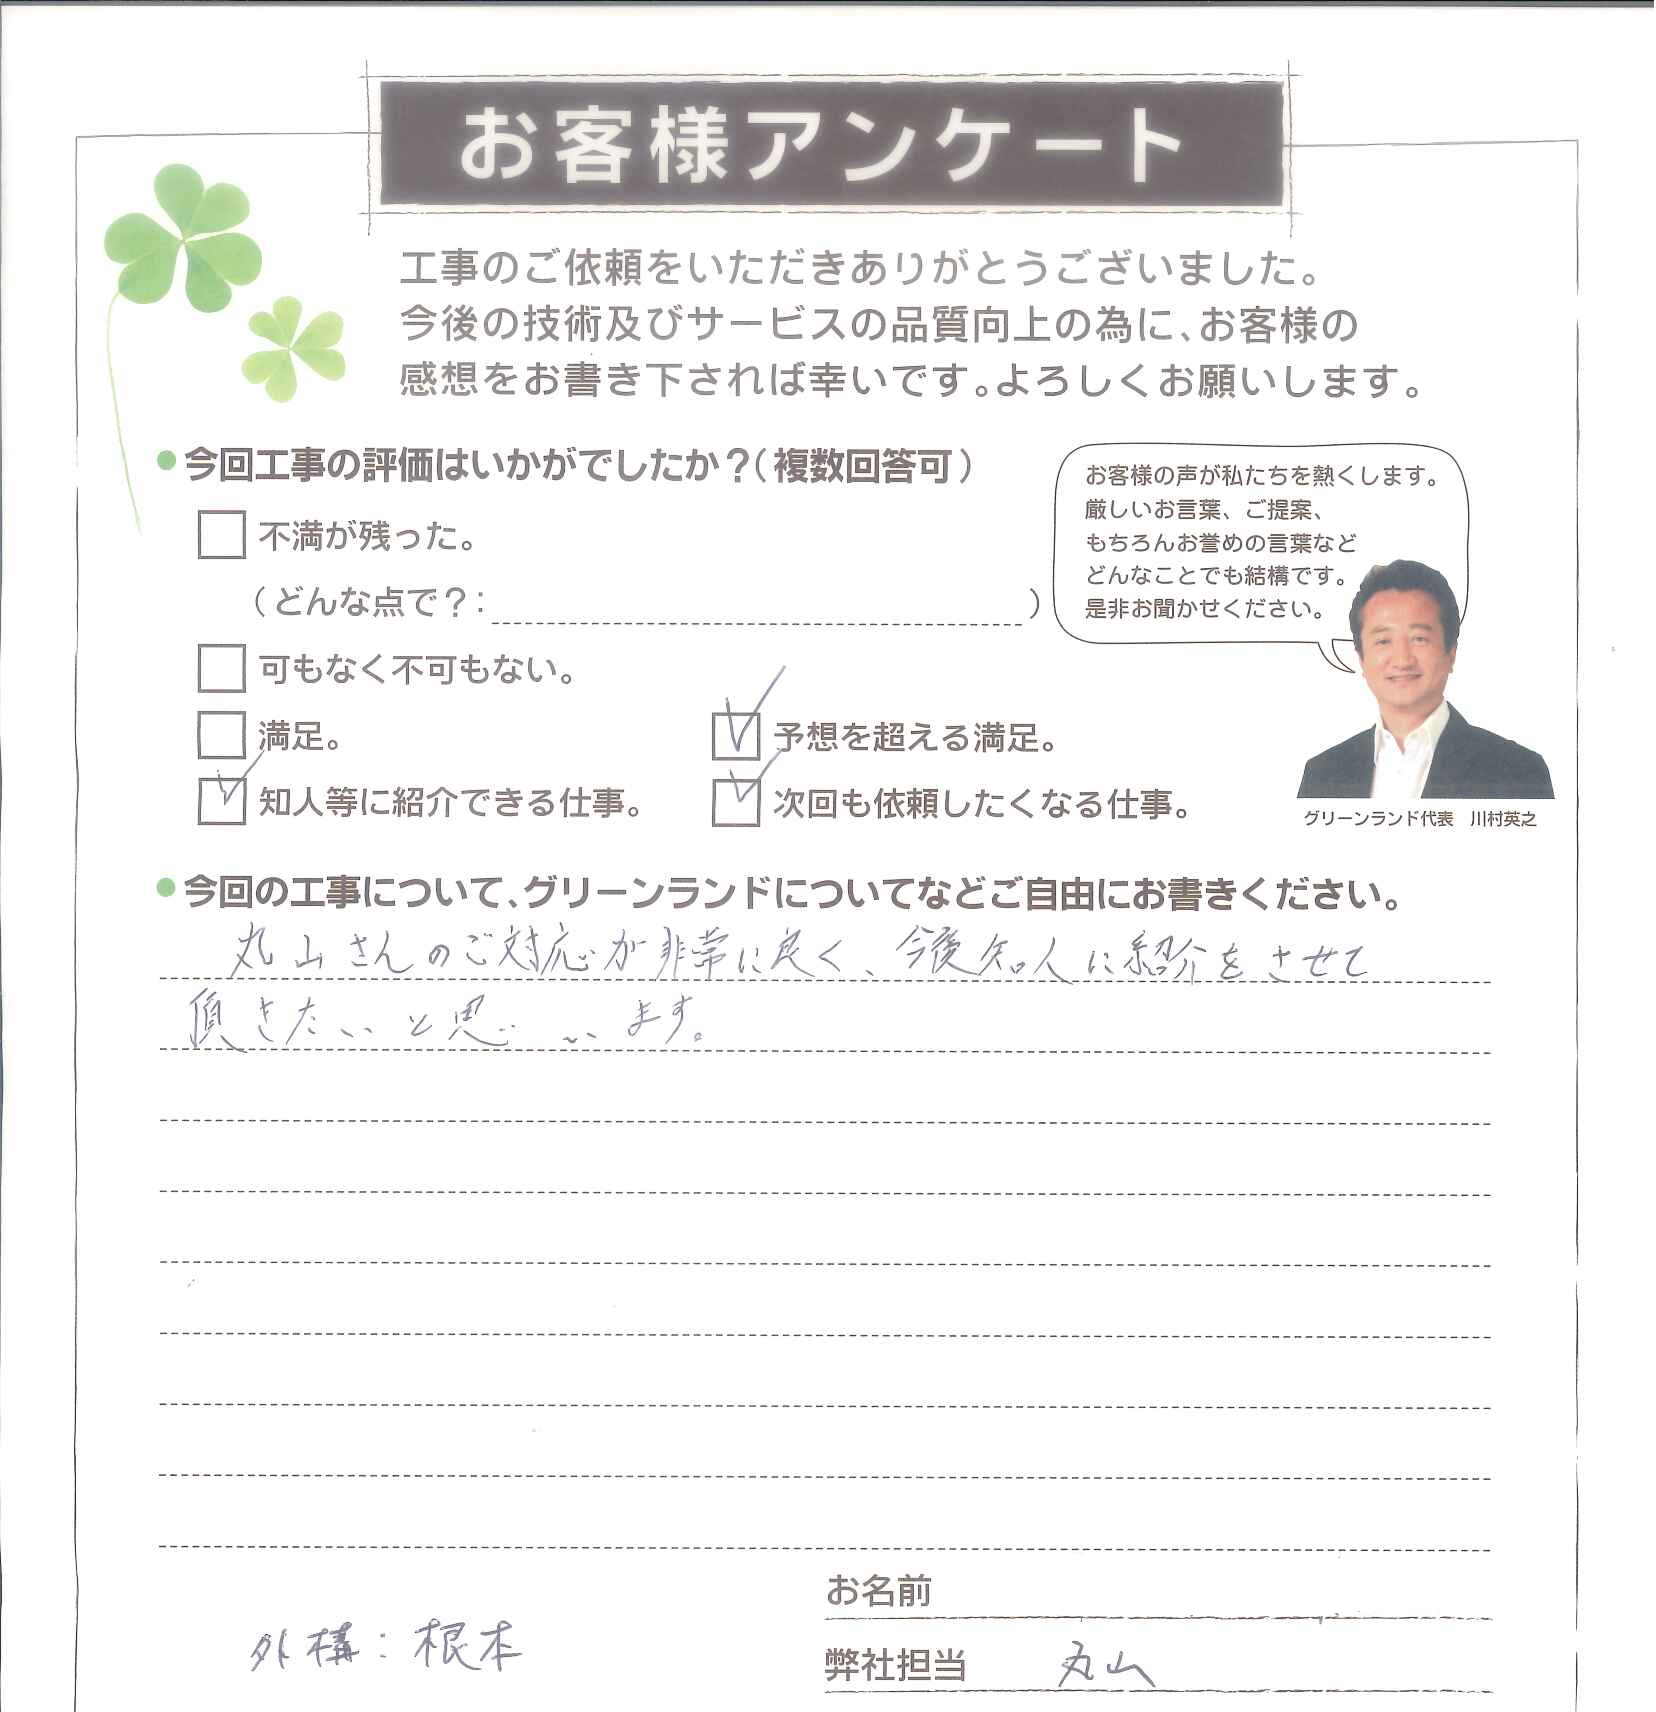 お客様アンケート
工事のご依頼をいただきありがとうございました。
今後の技術及びサービスの品質向上の為に、お客様の
感想をお書き下されば幸いです。よろしくお願いします。
今回工事の評価はいかがでしたか？（複数回答可）
お客様の声が私たちを熱くします。
厳しいお言葉、ご提案、
もちろんお誉めの言葉など
どんなことでも結構です。
是非お聞かせください。
不満が残った。
（どんな点で？：　）
可もなく不可もない。
満足。
予想を超える満足。
知人等に紹介できる仕事。
次回も依頼したくなる仕事。
グリーンランド代表　川村英之
今回の工事について、グリーンランドについてなどご自由にお書きください。
丸山さんのご対応が非常に良く、今後知人に紹介をさせて
頂きたいと思います。
お名前
外構：根本
弊社担当　丸山